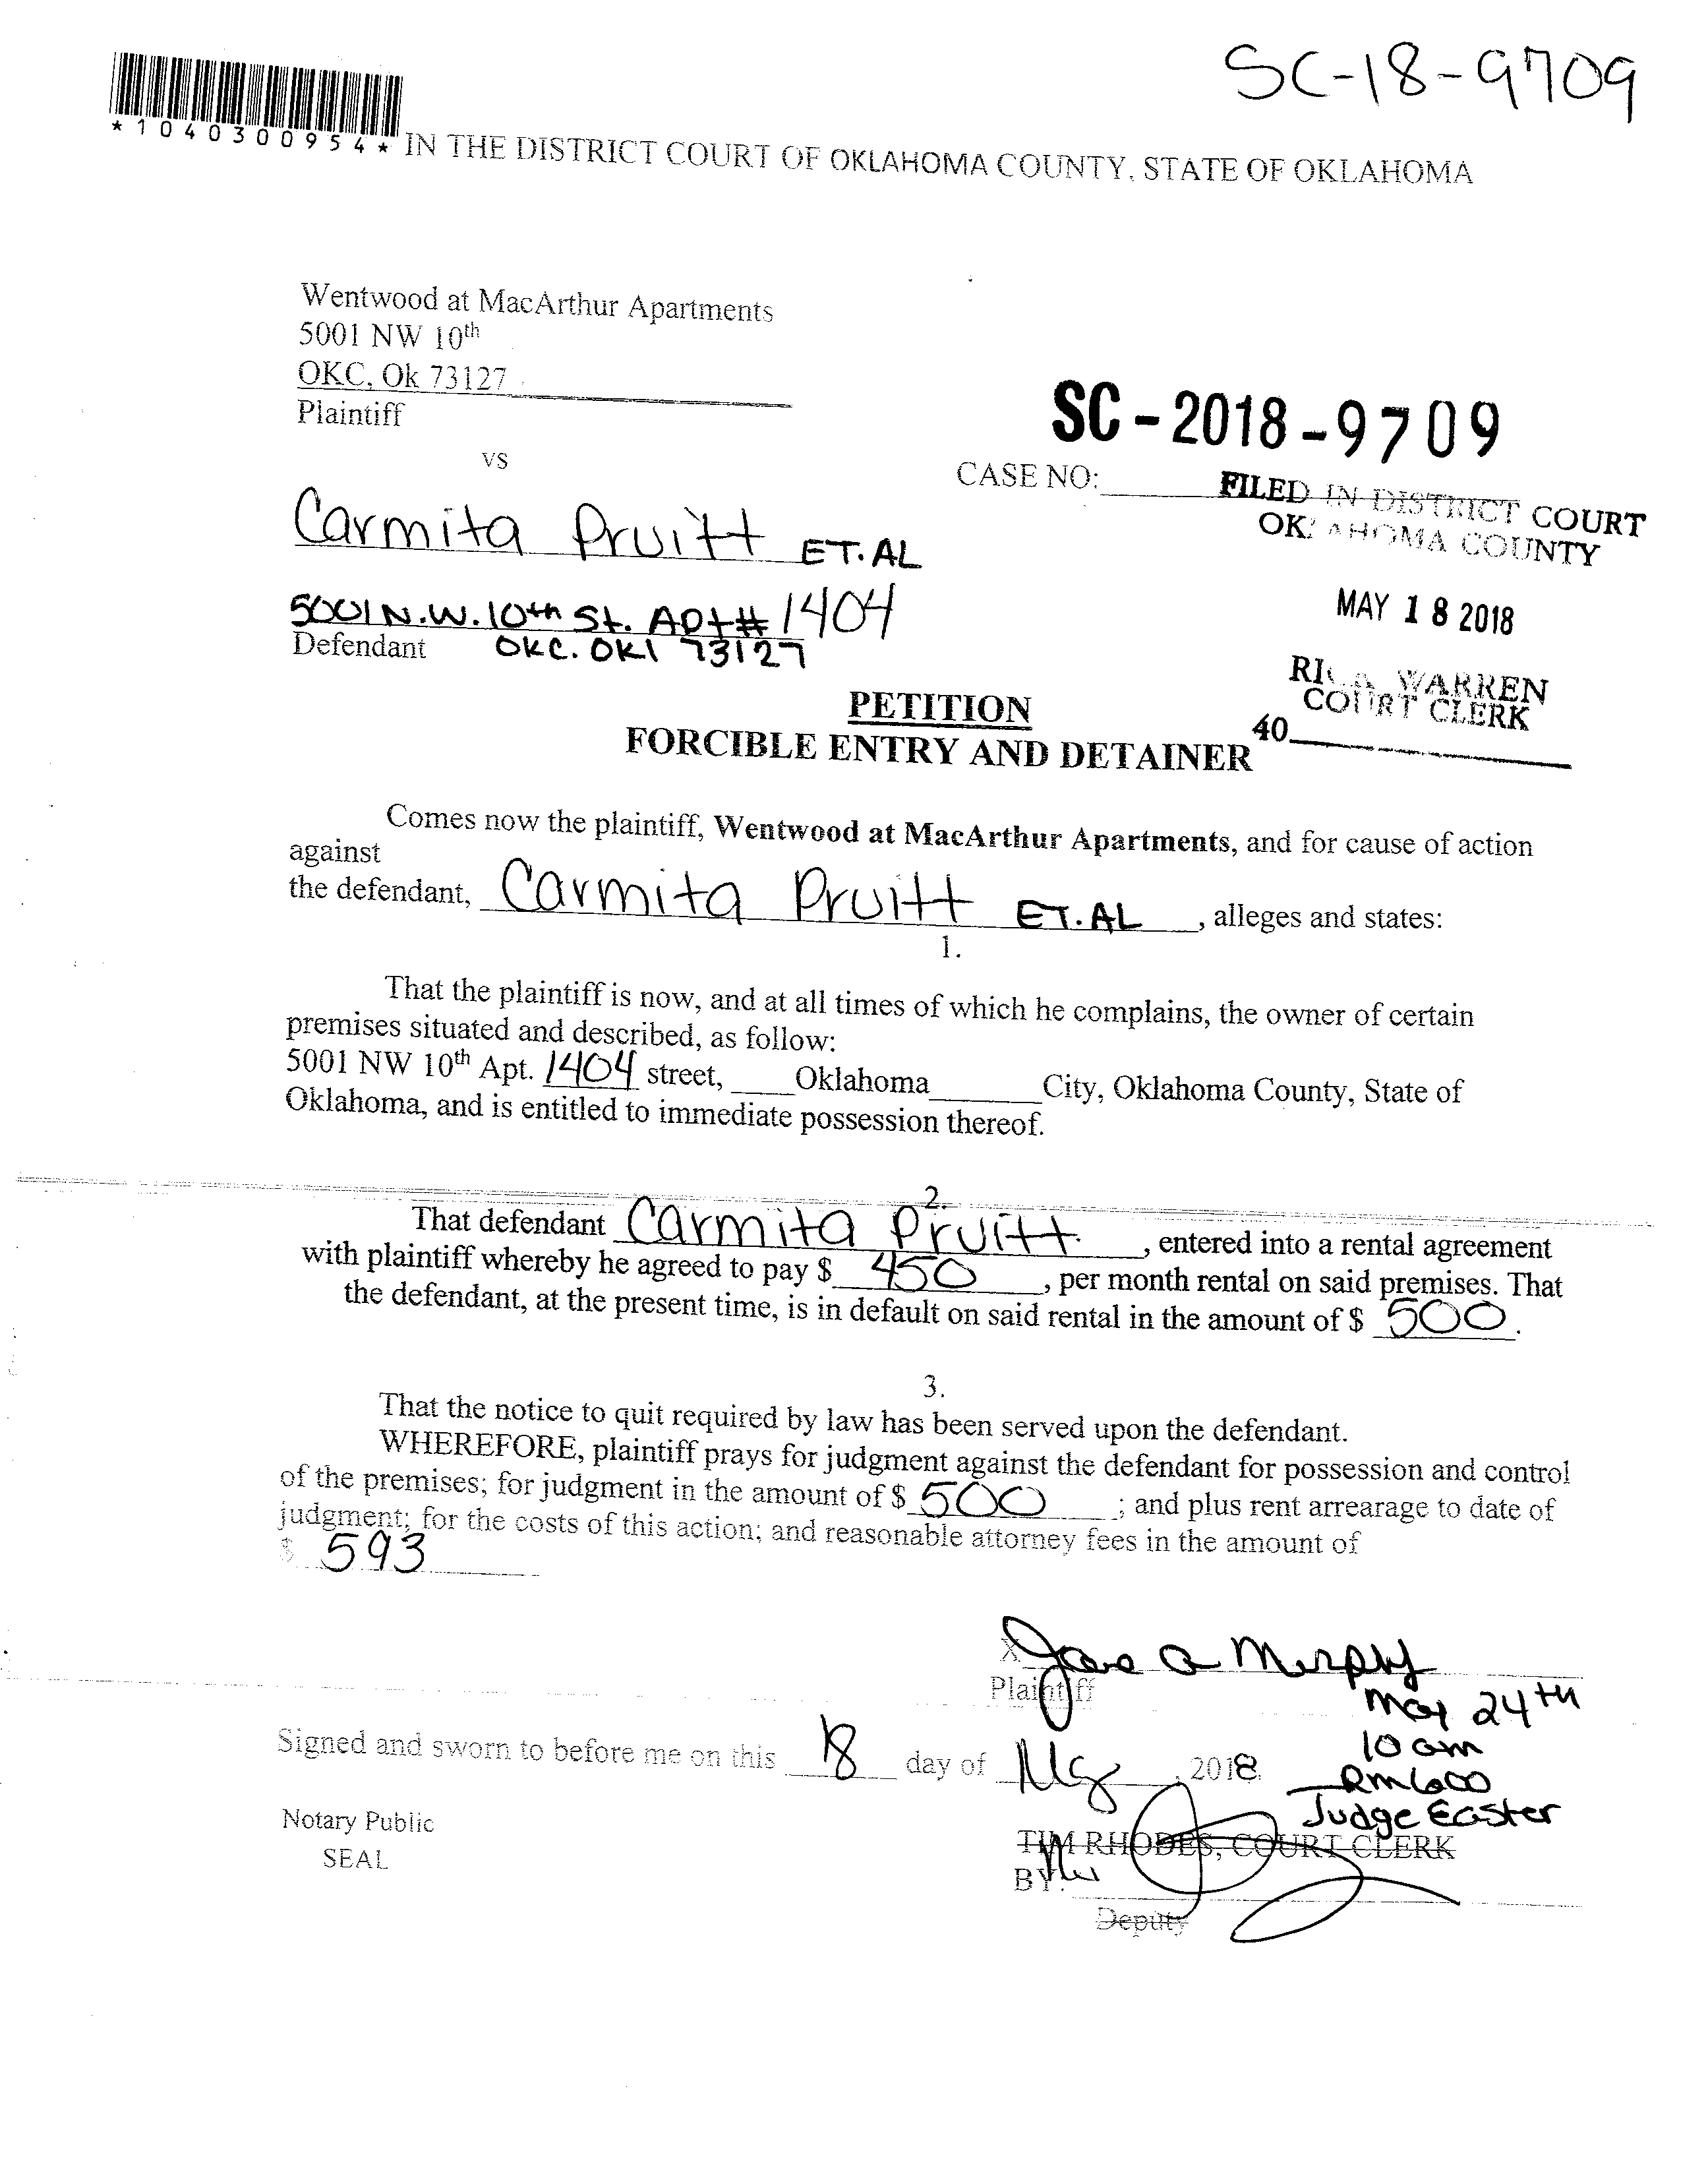 SC-18-9709
*1040300954*
IN THE DISTRICT COURT OF OKLAHOMA COUNTY, STATE OF OKLAHOMA
Wentwood at MacArthur Apartments
5001 NW 10th
OKC, Ok 73127
Plaintiff
vs
SC-2018-9709
CASE NO:
FILED IN DISTRICT COURT
OK AHOMA COUNTY
MAY 18 2018
WARREN
COURT CLERK
40
Carmita Pruitt ET.AL
5001 N.W. 10th St. Apt# 1404
Defendant OKC. OKl 73127
PETITION
FORCIBLE ENTRY AND DETAINER
Comes now the plaintiff, Wentwood at MacArthur Apartments, and for cause of action
against
the defendant, Carmita Pruitt ET.AL, alleges and states:
1.
That the plaintiff is now, and at all times of which he complains, the owner of certain
premises situated and described, as follow:
5001 NW 10th Apt. 1404 street, Oklahoma City, Oklahoma County, State of
Oklahoma, and is entitled to immediate possession thereof.
2.
That defendant Carmita Pruitt, entered into a rental agreement
with plaintiff whereby he agreed to pay $ 450, per month rental on said premises. That
the defendant, at the present time, is in default on said rental in the amount of $ 500.
3.
That the notice to quit required by law has been served upon the defendant.
WHEREFORE, plaintiff prays for judgment against the defendant for possession and control
of the premises; for judgment in the amount of $ 500; and plus rent arrearage to date of
judgment; for the costs of this action; and reasonable attorney fees in the amount of
$ 593
X Jane a Murphy
Plaintiff
May 24th
10 am
Rm 600
Judge Easter
Signed and sworn to before me on this 18 day of , 2018.
Notary Public
SEAL
TIM RHODES, COURT CLERK
BY:
Deputy